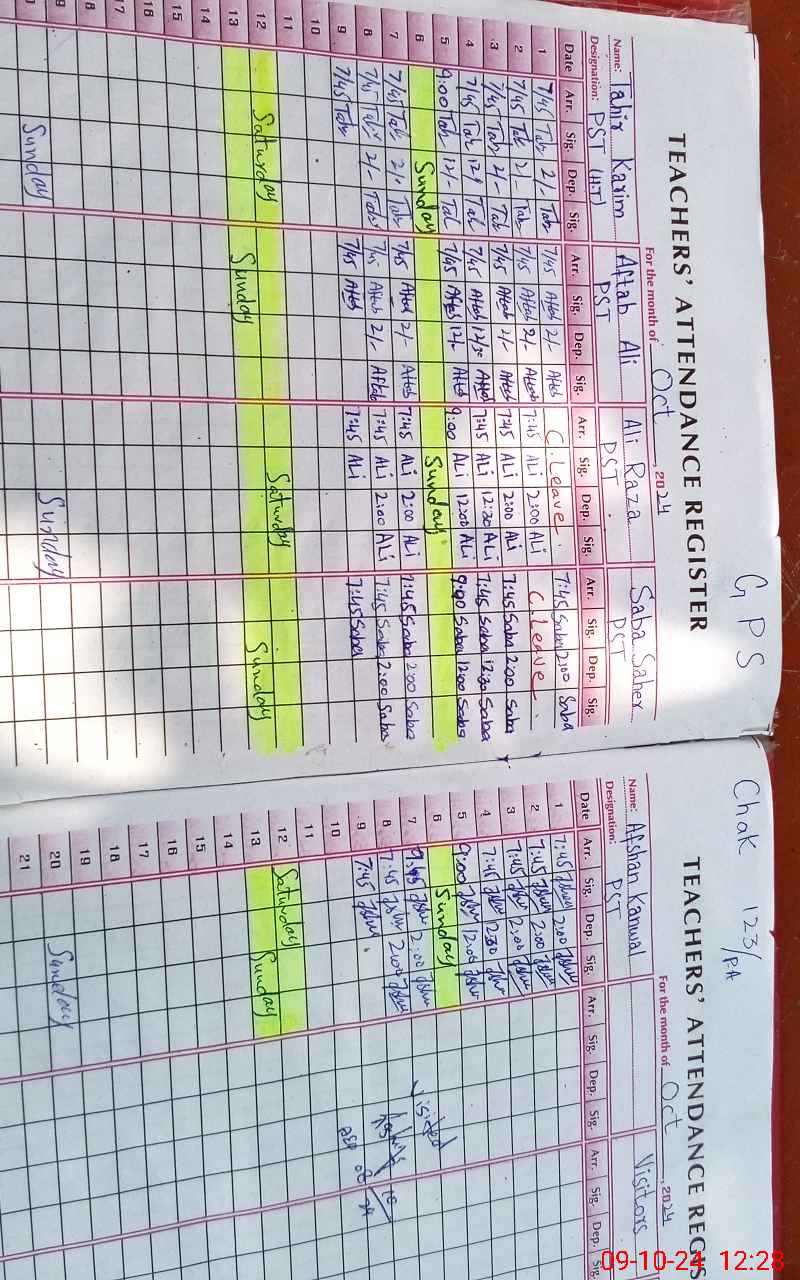 GPS
TEACHERS' ATTENDANCE REGISTER
For the month of Oct, 2024
Name: Tahir Karim Aftab Ali Ali Raza Saba Saher
Designation: PST (H.T) PST PST PST
Date Arr. Sig. Dep. Sig. Arr. Sig. Dep. Sig. Arr. Sig. Dep. Sig. Arr. Sig. Dep. Sig.
1 7/45 Tah 2/- Tah 7/45 Aftab 2/- Aftab C.Leave. 7:45 Saba 2:00 Saba
2 7/45 Tah 2/- Tah 7/45 Aftab 2/- Aftab 7:45 ALi 2:00 ALi C.Leave.
3 7/45 Tah 2/- Tah 7/45 Aftab 2/- Aftab 7:45 ALi 2:00 ALi 7:45 Saba 2:00 Saba
4 7/45 Tah Tah 7/45 Aftab 12/30 Aftab 7:45 ALi 12:30 ALi 7:45 Saba 12:30 Saba
5 9:00 Tah 12/- Tah 7/45 Aftab 12/- Aftab 9:00 ALi 12:00 ALi 9:00 Saba 12:00 Saba
6 Sunday Sunday
7 7/45 Tah 2/- Tah 7/45 Aftab 2/- Aftab 7:45 ALi 2:00 ALi 7:45 Saba 2:00 Saba
8 7/45 Tah 2/- Tah Aftab 2/- Aftab 7:45 ALi 2:00 ALi 7:45 Saba 2:00 Saba
9 7/45 Tah 7/45 Aftab 7:45 ALi 7:45 Saba
10
11
12 Saturday Saturday
13 Sunday Sunday
14
15
16
17
18
Sunday Sunday
Chak 123/PA
TEACHERS' ATTENDANCE REGIS
For the month of Oct, 2024
Name: Afshan Kanwal Visitors
Designation: PST
Date Arr. Sig. Dep. Sig. Arr. Sig. Dep. Sig. Arr. Sig. Dep. Sig.
1 7:45 2:00
2 7:45 2:00
3 7:45 2:00
4 7:45
5 9:00 12:00
6 Sunday
7 2:00 Visited
8 7:45 2:00
9 7:45
10
11
12 Saturday
13 Sunday
14
15
16
17
18
19
20 Sunday
21
09-10-24 12:28